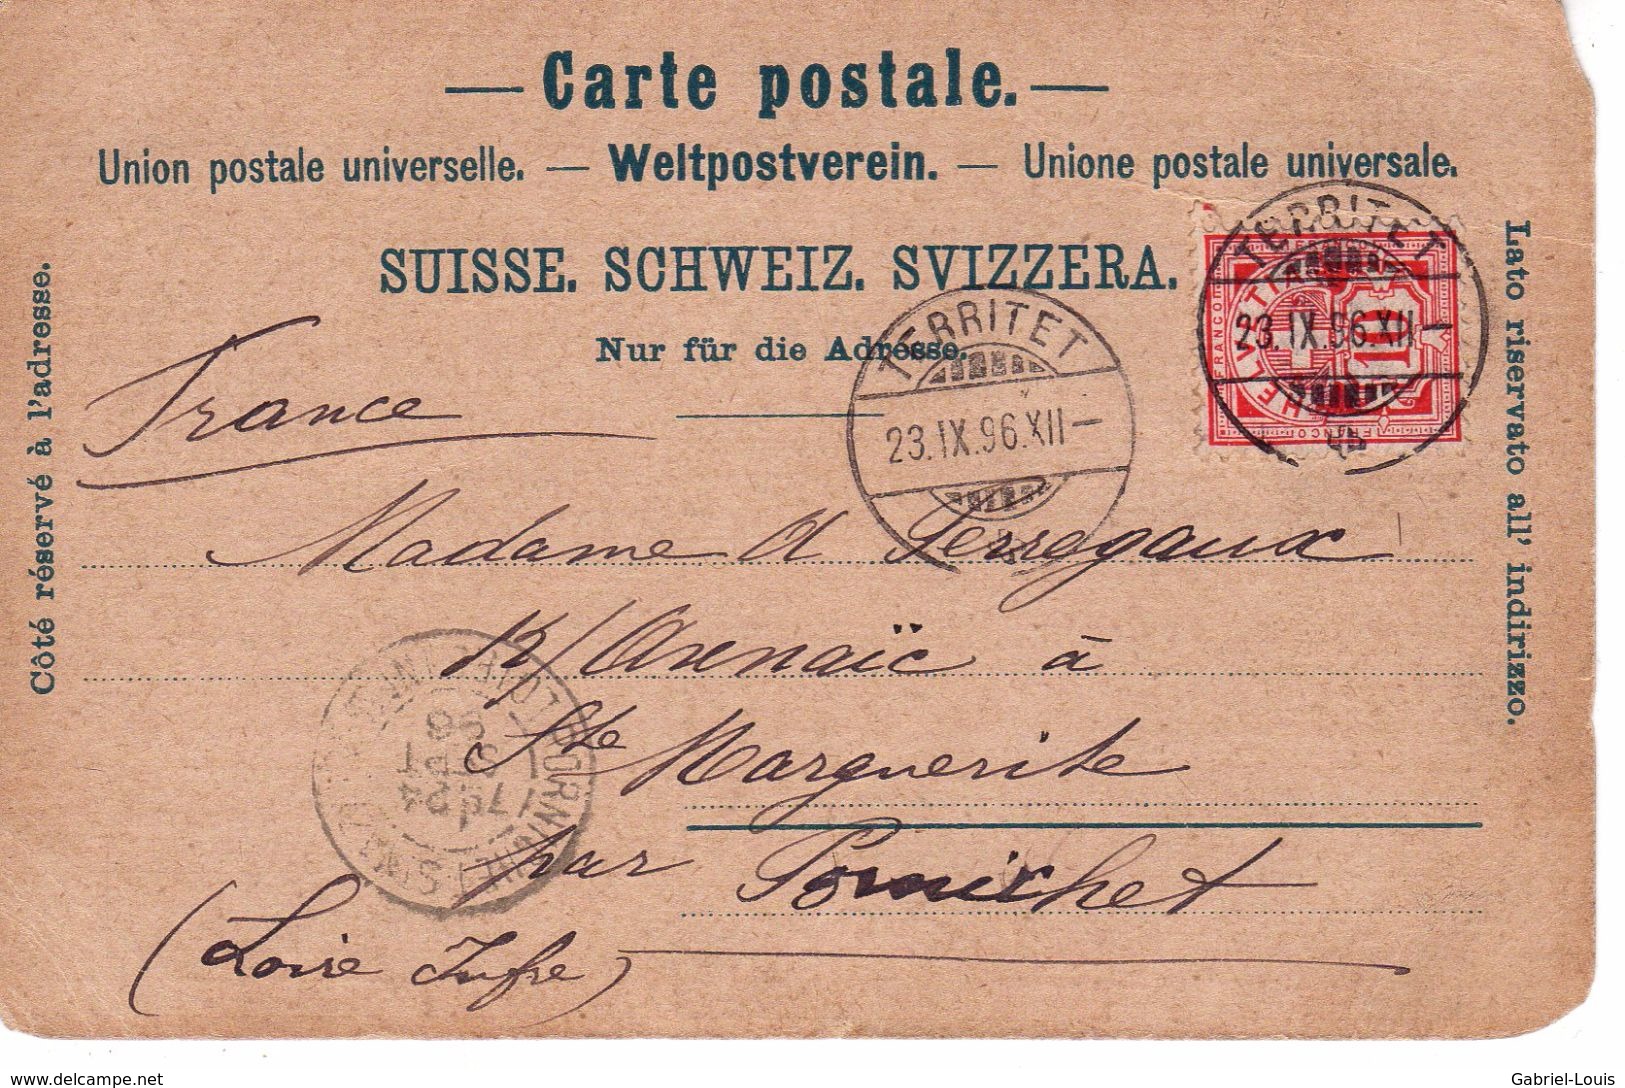 — Carte postale. —
Union postale universelle. — Weltpostverein. — Unione postale universale.
SUISSE. SCHWEIZ. SVIZZERA.
Nur für die Adresse.
Côté réservé à l'adresse.
Lato riservato all' indirizzo.
TERRITET
23.IX.96.XII—
TERRITET
23.IX.96.XII—
FRANCO
HELVETIA
10
France
Madame A Perregaux
à
Ste Marguerite
par Pornichet
(Loire Infre)
www.delcampe.net
Gabriel-Louis